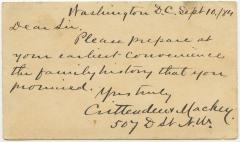 Washington D.C. Sept. 10, /84
Dear Sir,
Please prepare at
your earliest convenience
the family history that you
promised.
Yrs truly
Crittenden & Mackey
507 D St. N.W.